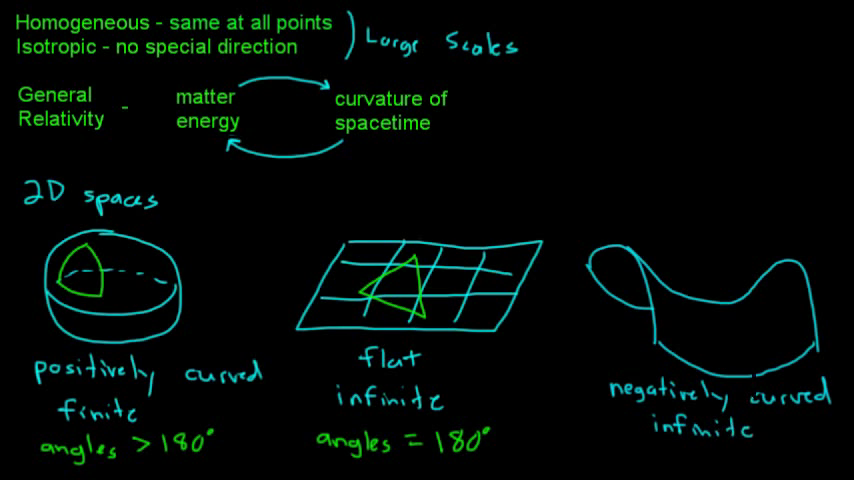 Homogeneous - same at all points
Isotropic - no special direction
Large Scales
General
Relativity
-
matter
energy
curvature of
spacetime
2D spaces
positively curved
finite
angles > 180°
flat
infinite
angles = 180°
negatively curved
infinite